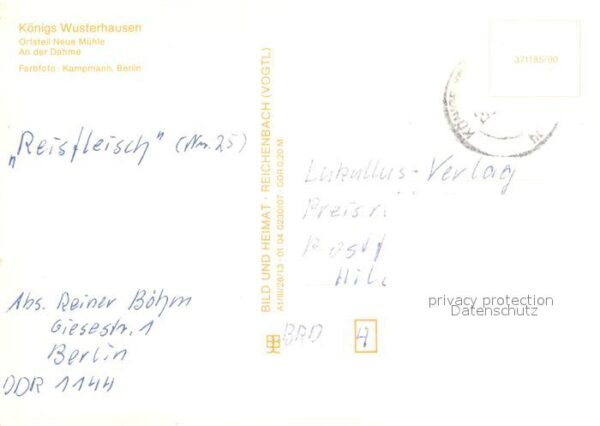 Königs Wusterhausen
Ortsteil Neue Mühle
An der Dahme
Farbfoto: Kampmann, Berlin
„Reisfleisch" (Nr. 25)
Abs. Reiner Böhm
Giesestr. 1
Berlin
DDR 1144
BILD UND HEIMAT · REICHENBACH (VOGTL)
A1/III/26/13 · 01 04 0230/07 DDR 0,20 M
371185/90
Lukullus-Verlag
Preisr
Postf
Hil
BRD
privacy protection
Datenschutz